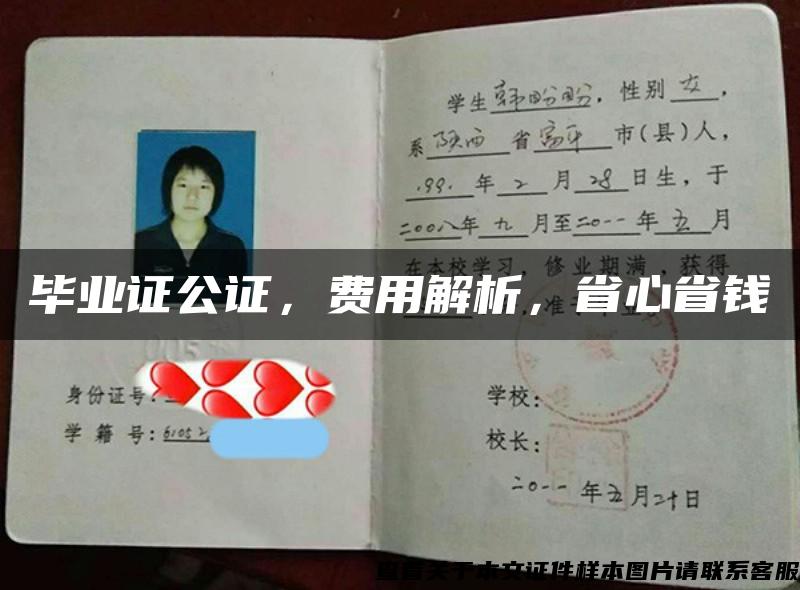 学生韩盼盼，性别女，
系陕西省富平市(县)人，
1991年2月28日生，于
二00八年九月至二0一一年五月
在本校学习，修业期满，获得
毕业证公证，费用解析，省心省钱
身份证号：
学籍号：6105
学校：
校长：
二0一一年五月二十日
查看关于本文证件样本图片请联系客服